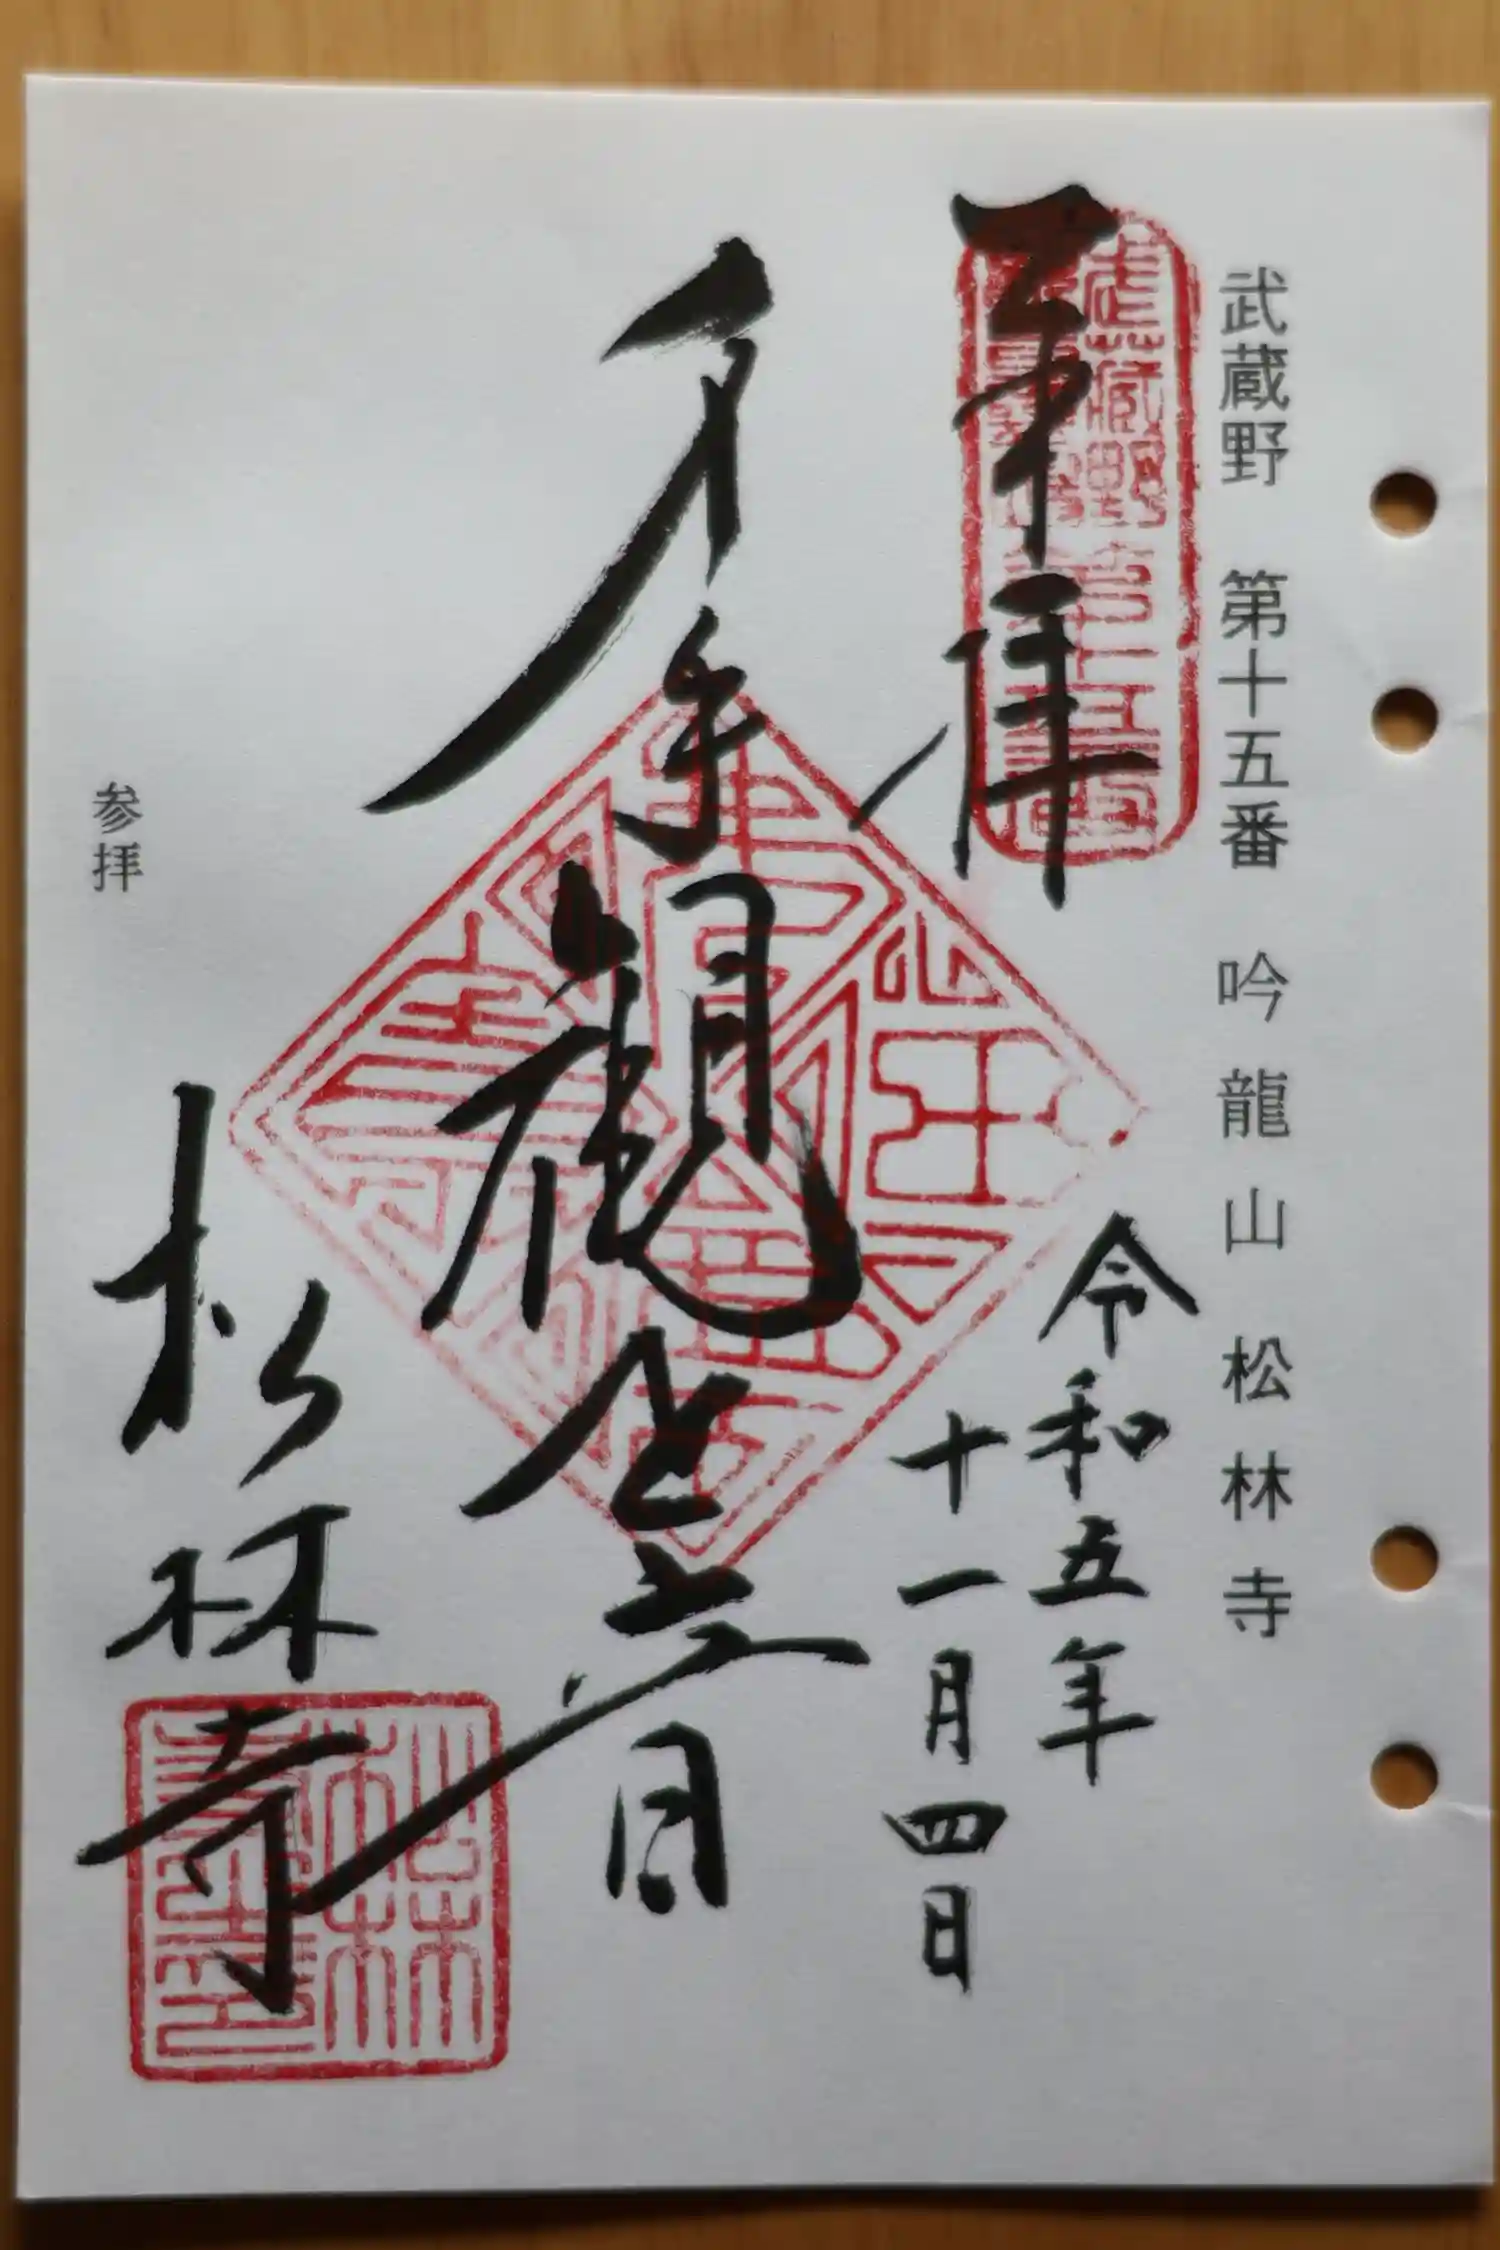 武蔵野 第十五番 吟龍山 松林寺
奉拝
武蔵野
令和五年
十一月四日
千手観世音
松林寺
松林
参拝